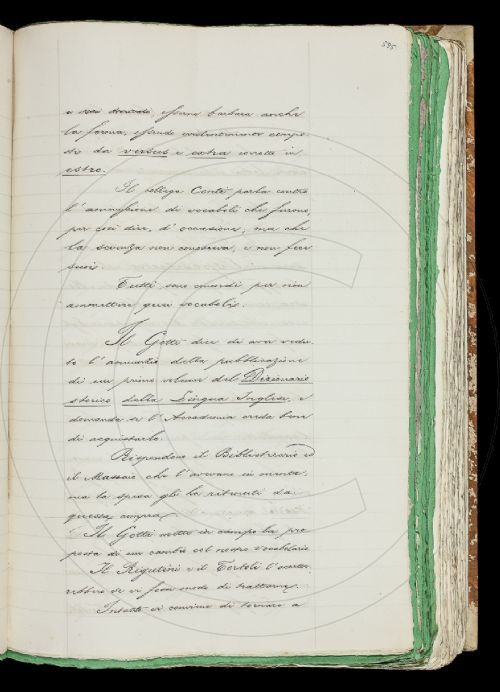 595
essere barbara anche
la forma, essendo evidentemente compo-
sto da versus e extra corretto in
estro.
Il collega Conti parla contro
l'ammissione di vocaboli che furono,
per così dire, d'occasione, ma che
la scienza non conserva, e non fece
suoi.
Tutti sono concordi per non
ammettere quei vocaboli.
Il Gotti dice di aver vedu-
to l'annunzio della pubblicazione
di un primo volume del Dizionario
storico della Lingua Inglese, e
domanda se l'Accademia creda bene
di acquistarlo.
Rispondono il Bibliotecario ed
il Massaio che l'avevano in mente,
ma la spesa gli ha ritenuti da
questa compra.
Il Gotti mette in campo la pro
posta di un cambio col nostro Vocabolario
Il Rigutini e il Tortoli l'accet-
terebbero se vi fosse modo di trattarne.
Intanto si conviene di tornare a